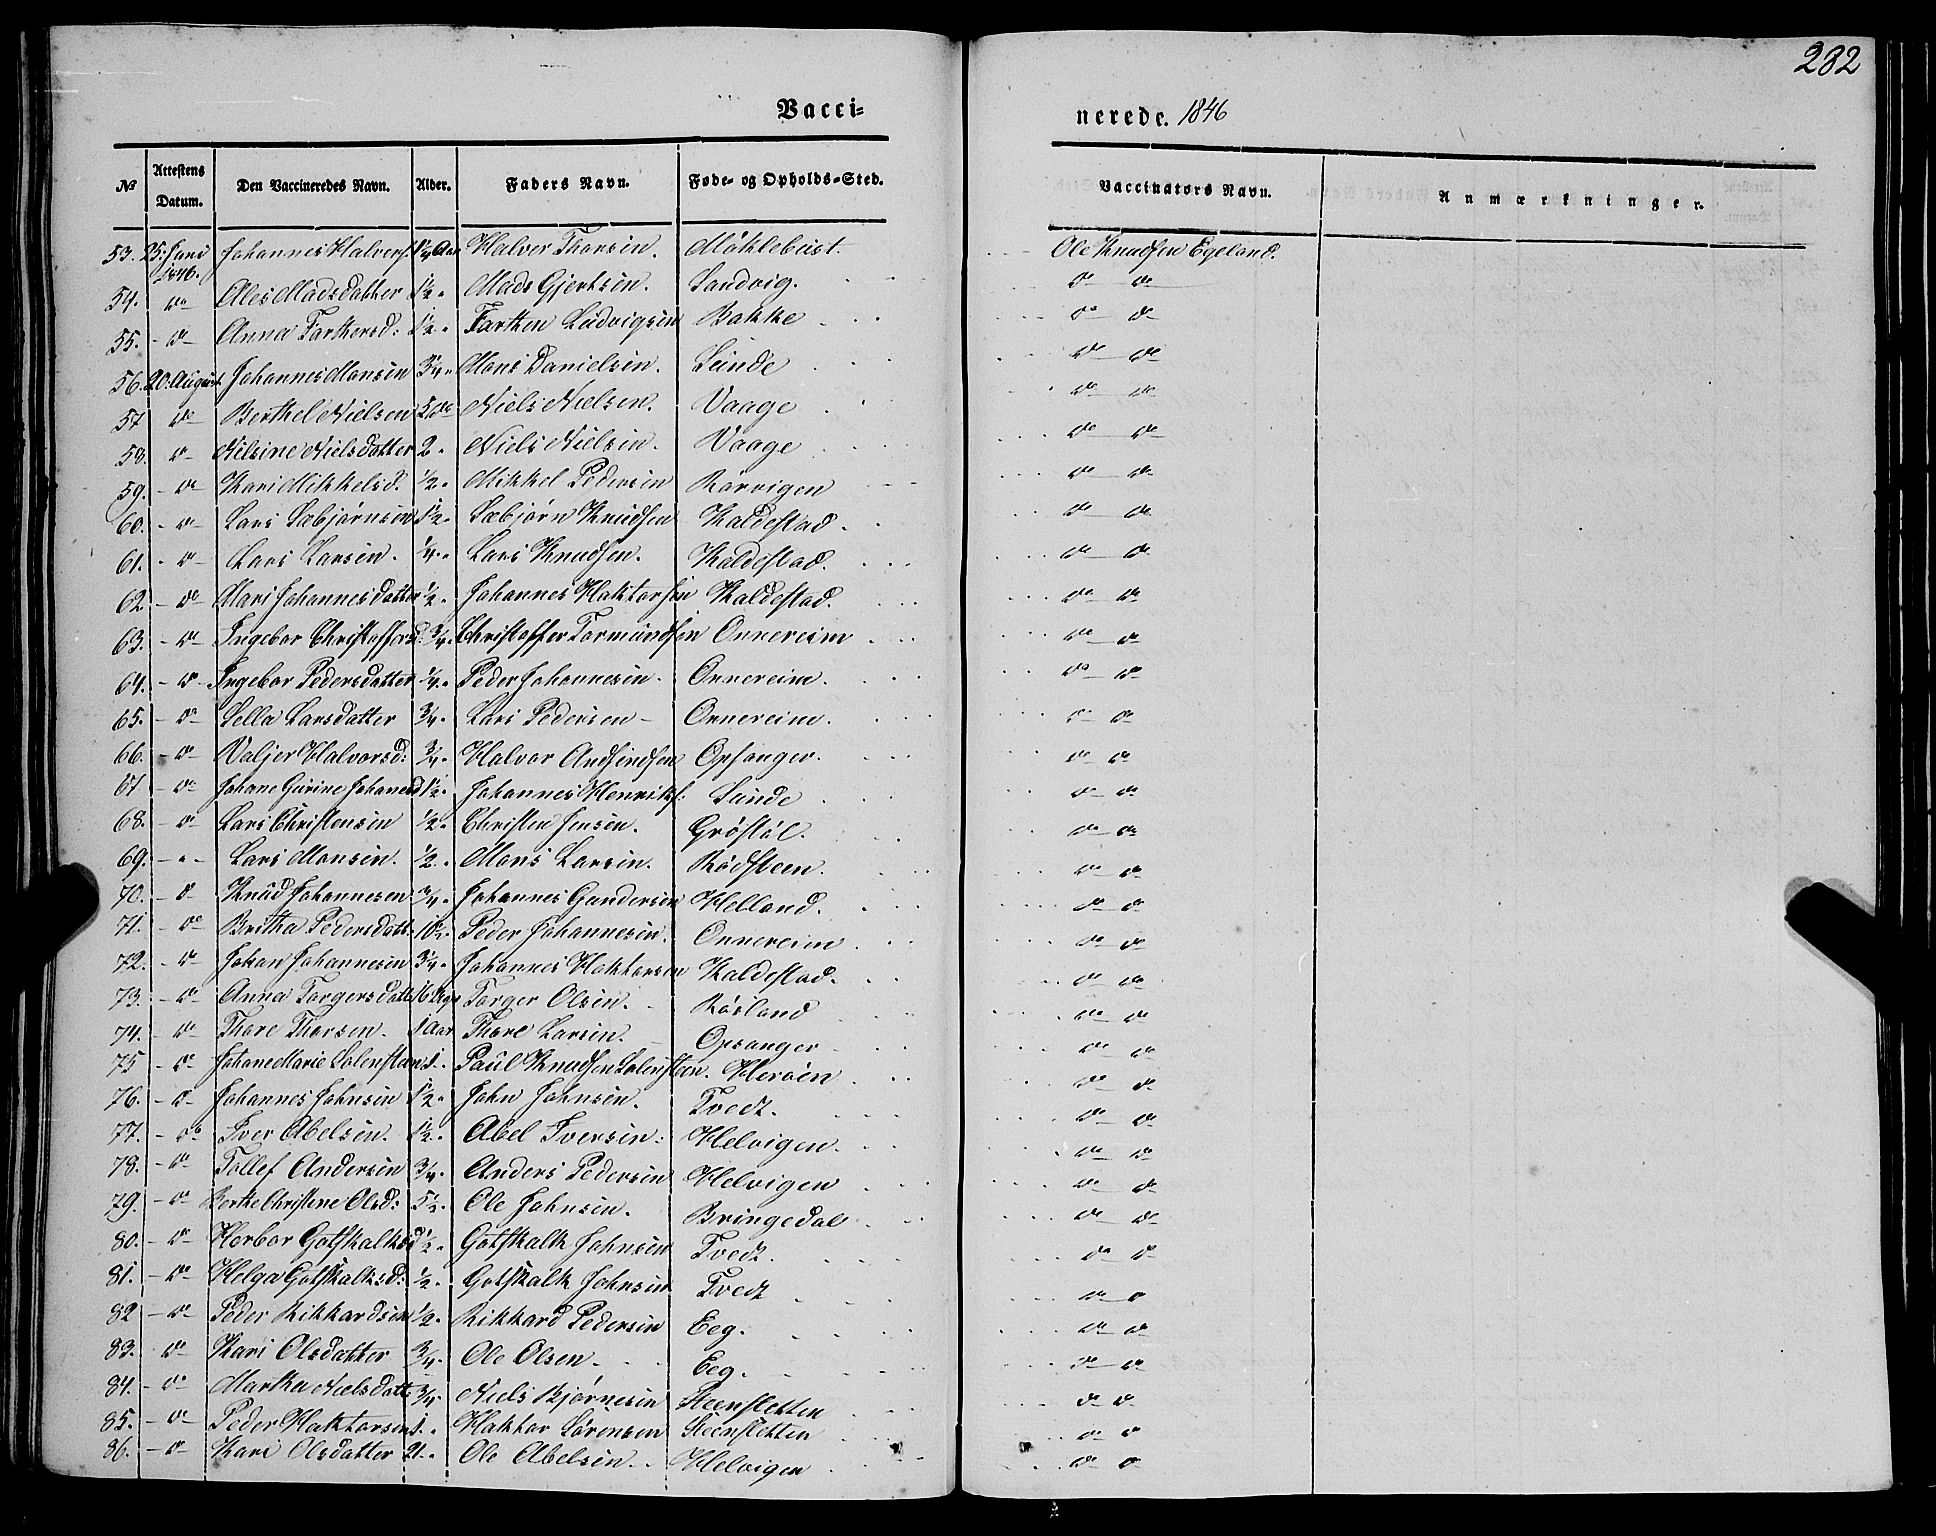 232
Vacci-
nerede. 1846
№ Attestens Datum. Den Vaccineredes Navn. Alder. Faders Navn. Føde- og Opholds-Sted. Vaccinators Navn. Anmærkninger.
53. 25. Juni 1846. Johannes Halvers. 1¼ Aar Halver Thorsen. Ole Knudsen Egeland.
54. do Madsdatter 1½ " Mads Gjertsen. Sandvig. do do
55. - do Anna 1½ " Ludvigsen Bakke do do
56. 20. August Johannes Monsen 3¼ " Mons Danielsen. Sunde do do
57 do Berthel Nielsen 5 do Niels Nielsen. Vaage do do
58. do Nilsine Nielsdatter 2 " Niels Nielsen. Vaage do do
59. - do Kari Mikkelsd. ½ " Mikkel Pedersen do do
60. - do Lars Sæbjørnsen 1½ " Sæbjørn Knudsen Kaldestad. do do
61. - do Lars Larsen. ¼ " Lars Knudsen. Kaldestad. do do
62 - do Mari Johannesdatter ½ " Johannes Haktorsen Kaldestad. do do
63. - do Ingebor Christoffersd. ¾ " Christoffer Tormundsen Onnereim do do
64. - do Ingebor Pedersdatter ¼ " Peder Johannesen. Onnereim. do do
65. - do Sella Larsdatter ¾ " Lars Pedersen - Onnereim. do do
66. - do Valjer Halvorsd: ¾ " Halvor Opsanger. do do
67 - do Johane Gurine Johanesd 1½ " Johannes Henriks: Sunde do do
68. - do Lars Christensen ½ " Christen Jensen. do do
69. - " - Lars Monsen. ½ " Mons Larsen. Rødsteen. do do
70. - do Knud Johannesen ¾ " Johannes Gundersen Helland. do do
71. - do Britha Pedersdatt: 10½ " Peder Johannesen. Onnereim do do
72. - do Johan Johannesen 3¼ " Johannes Haktorsen Kaldestad. do do
73. - do Anna Torgersdatt: 16 Torger Olsen. - Røsland do do
74. - do Thore Thorsen. 1 Aar Thore Larsen. Opsanger do do
75 - do Johane Marie Solensteen 1 " Paul Knudsen Solensteen. Herøen do do
76. - do Johannes Johnsen 1½ " John Johnsen. Tvedt. do do
77. - do Iver Abelsen. 1½ " Abel Iversen: Helvigen. do do
78. - do Tollef Andersen ¾ " Anders Pedersen Helvigen do do
79. - do Berthe Christine Olsd: 5½ " Ole Johnsen. Bringedal do do
80. - do Herbor Gotskalksd ½ " Gotskalk Johnsen Tvedt. do do
81. - do Helga Gotskalksd: ½ " Gotskalk Johnsen Tvedt do do
82 - do Peder Rikkardsen ½ " Rikkard Pedersen Eeg. do do
83. - do Kari Olsdatter ¾ " Ole Olsen - Eeg. do do
84. - do Martha Nielsdatt: ¾ " Niels Bjørnesen Steensletten do do
85. - do Peder Haktorsen 1 " Haktor Sørensen Steensletten do do
86. - do Kari Olsdatter " Ole Abelsen. Helvigen do do